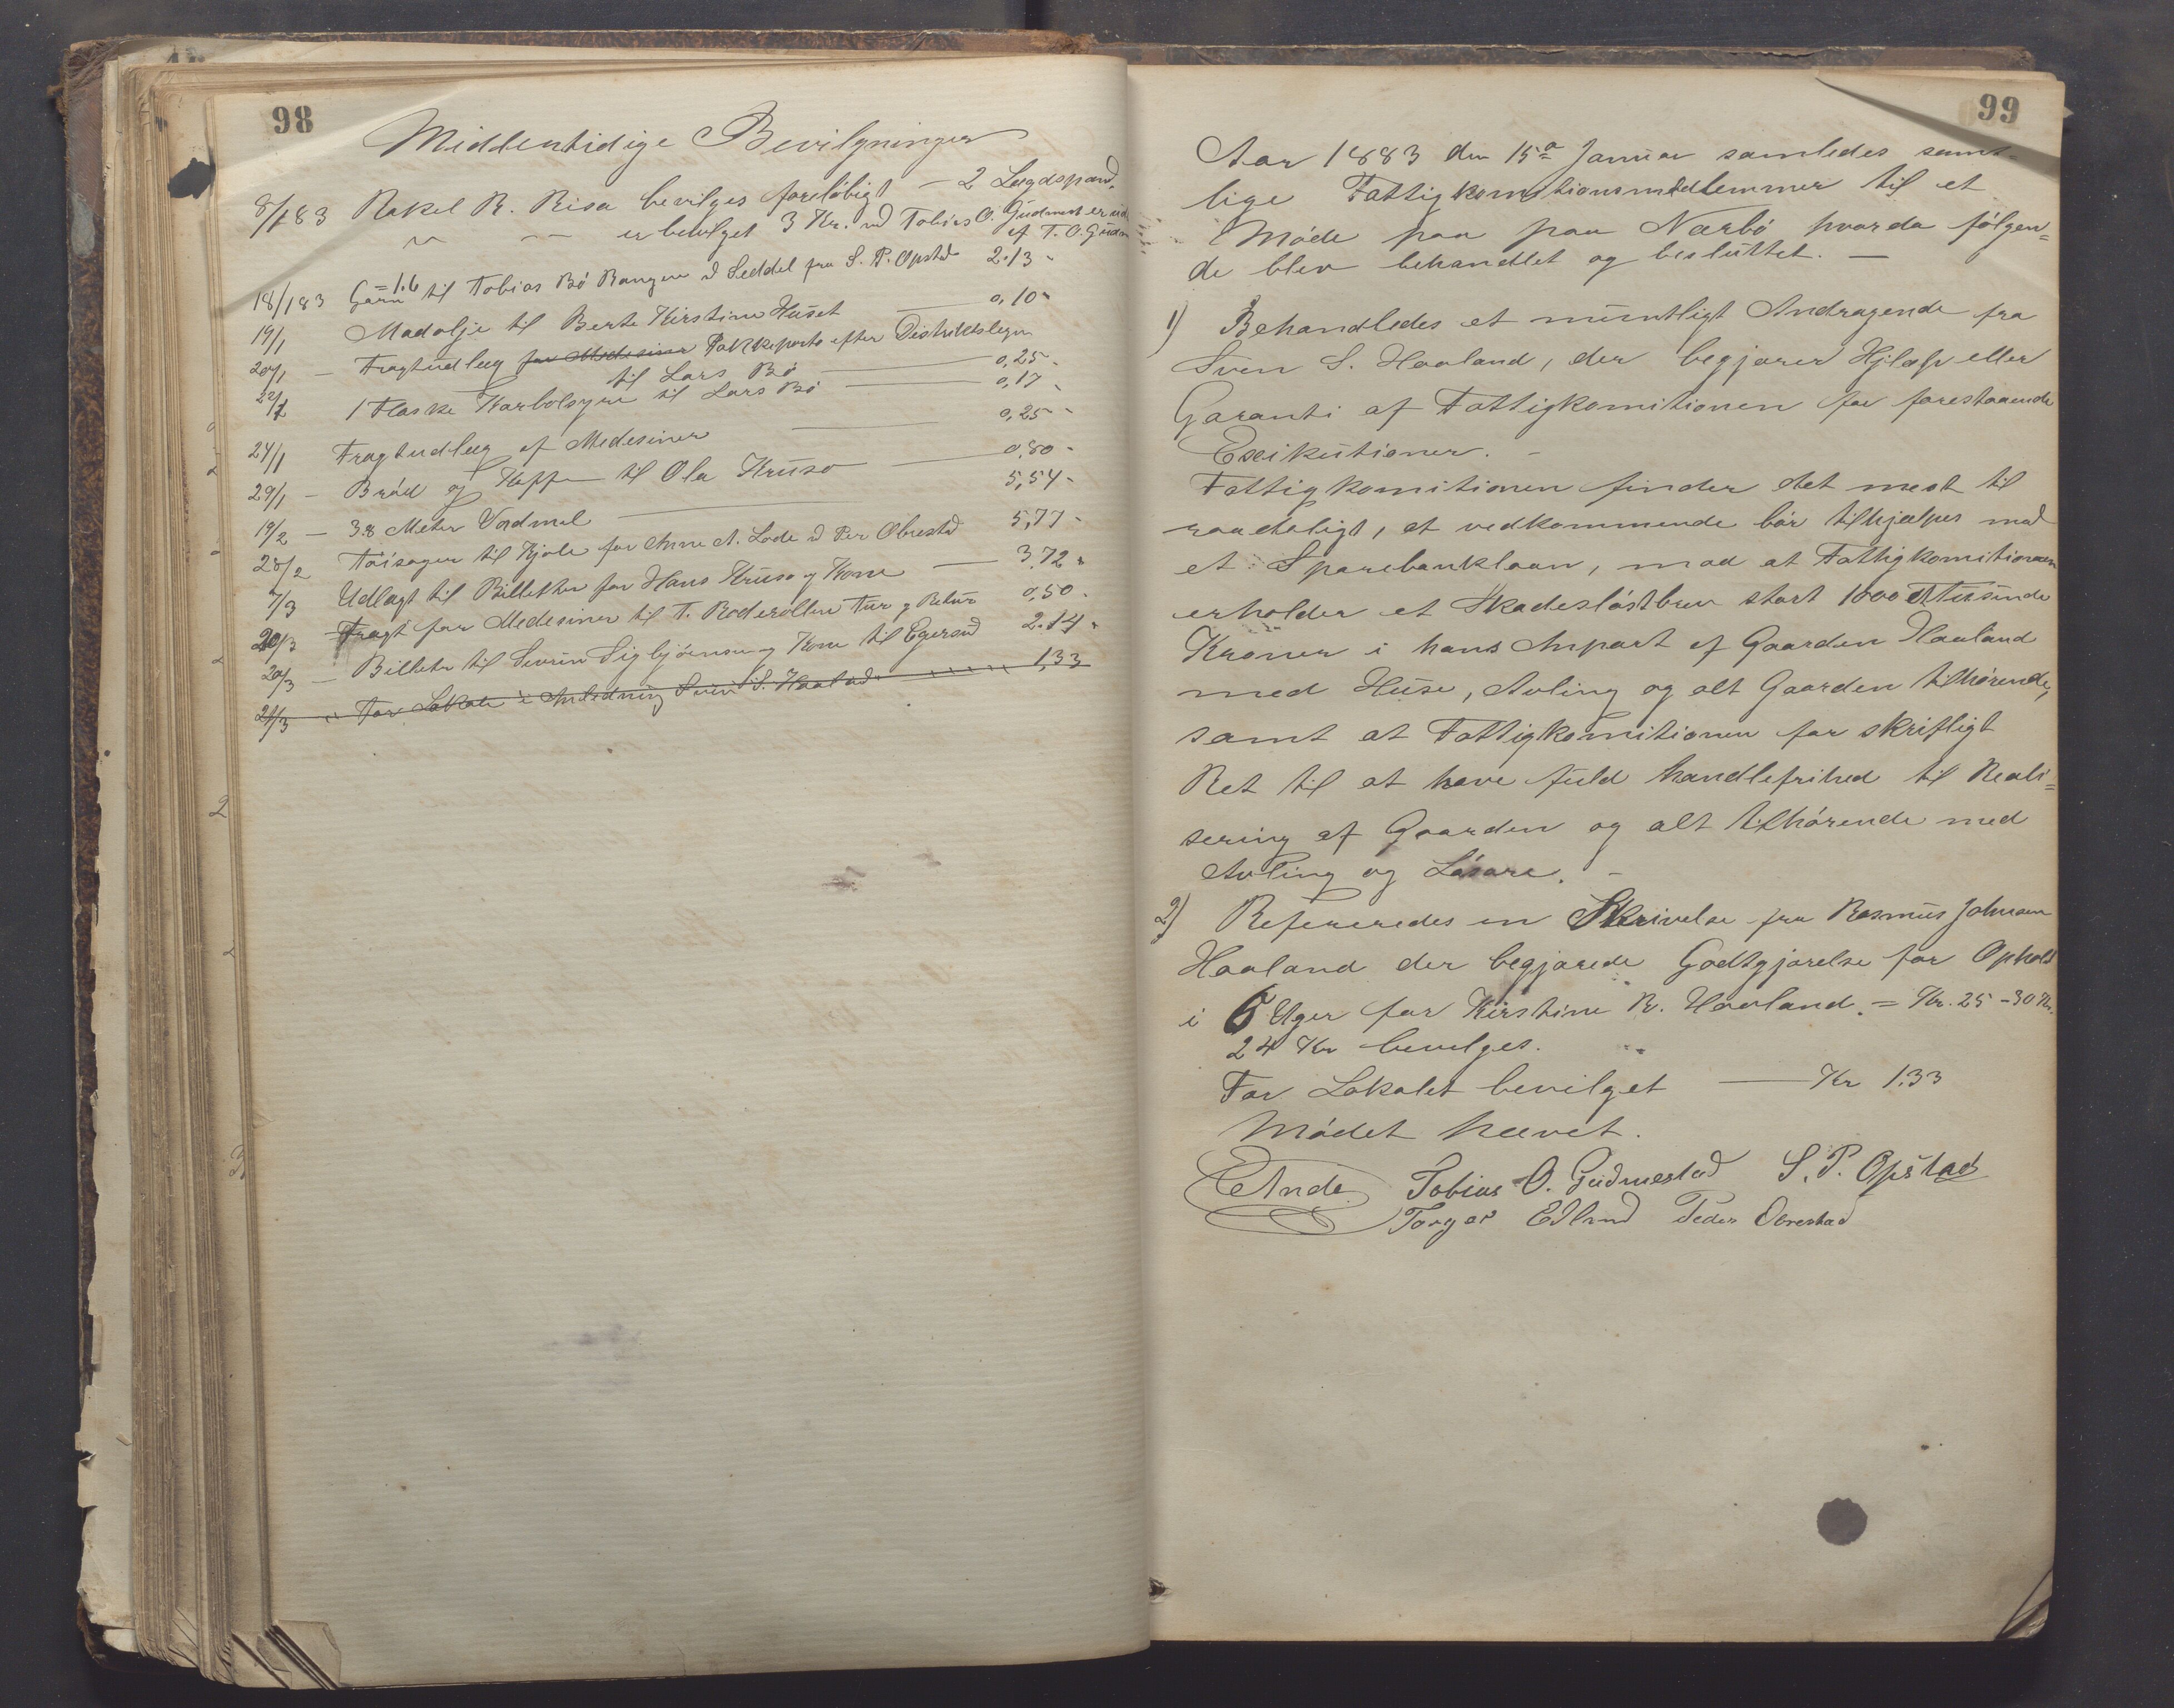 98
Middlentidige Bevilgninger
8/1 83 Rakel R. Risa bevilges foreløbigt — 2 Lægdspand.
er bevilget 3 Kr. ved Tobias O. Gudmest er ud
af T. O. Gudm
18/1 83 Garn = 1.6 til Tobias Bø Bangen d Seddel fra S. P. Opstad 2.13 -
19/1 Madolje til Berte Kirstine Huset — 0,10 -
20/1 — Fragtudlæg for Medesiner Pakkeporto efter Distriktslegen
til Lars Bø — 0,25 -
22/1 1 Flaske Karbolsyre til Lars Bø — 0,17 -
24/1 Fragtudlæg af Medesiner — 0,25 -
29/1 — Brød og Kaffe til Ola Kruse — 0,80 -
19/2 — 3.8 Meter Vadmel — 5,54 -
28/2 Tøisager til Kjole for Anne A. Lode d Per Obrestad 5,77 -
7/3 Udlagt til Billetter for Hans Kruse og Kone — 3,72 -
20/3 Fragt for Medesiner til T. Roderollen Tur og Retur 0,50 -
20/3 — Billeter til Sevrin Sigbjørnsen og Kone til Egersud 2.14 -
21/3 " For Lokale i Anledning Sven S. Haaland 1,33
99
Aar 1883 den 15de Januar samledes samt=
lige Fattigkomitionsmedlemmer til et
Møde paa paa Nærbø hvorda følgen=
de blev behandlet og besluttet. —
1) Behandledes et mundtligt Andragende fra
Sven S. Haaland, der begjærer Hjelp eller
Garanti af Fattigkomitionen for forestaaende
Exikutioner. -
Fattigkomitionen finder det mest til
raadeligt, at vedkommende bør tilhjælpes med
et Sparebanklaan, mod at Fattigkomitionen
erholder et Skadesløstbrev stort 1000 Et Tusinde
Kroner i hans Anpart af Gaarden Haaland
med Huse, Avling og alt Gaarden tilhørende,
samt at Fattigkomitionen faar skrifligt
Ret til at have fuld handlefrihed til Reali=
sering af Gaarden og alt tilhørende med
Avling og Løsøre. -
2) Refereredes en Skrivelse fra Rasmus Johnsen
Haaland der begjærede Godtgjørelse for Ophold
i 6 Uger for Kirstine R. Haaland. = Kr. 25 - 30 Kr.
24 Kr bevilges.
For Lokalet bevilget — Kr 1.33
Mødet hævet.
Tobias O. Gudmestad S. P. Opstad
Torger Edland Peder Obrestad